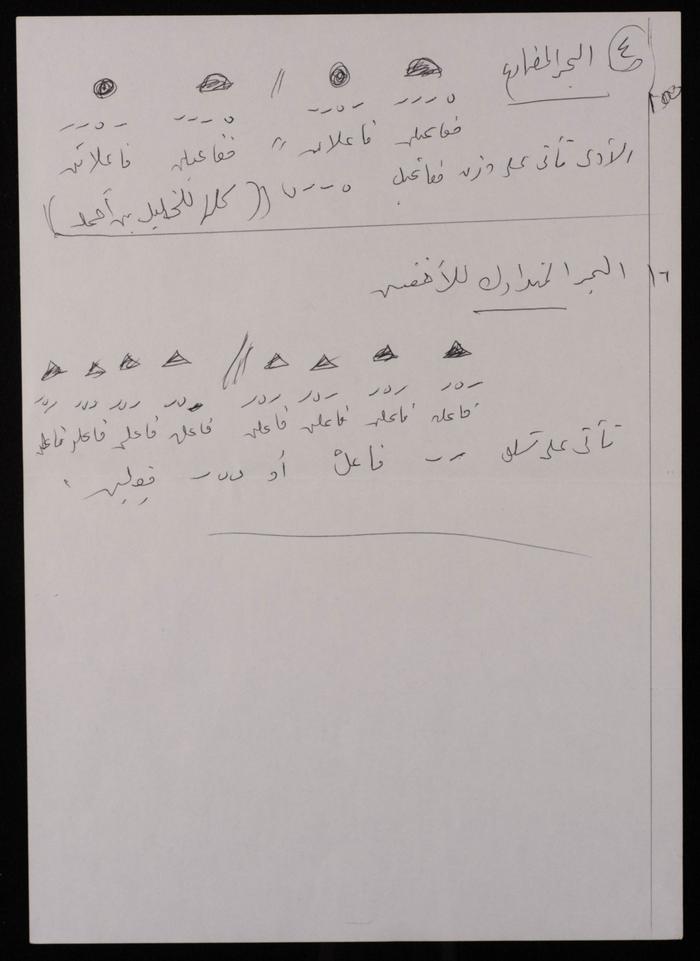 ٤ البحر المضارع
مفاعيلن فاعلاتن // مفاعيلن فاعلاتن
الأولى تأتي على وزن مفاعيل ((كلها للخليل بن أحمد))
١٦ البحر المتدارك للأخفش
فاعلن فاعلن فاعلن فاعلن // فاعلن فاعلن فاعلن فاعلن
تأتي على فاعل أو